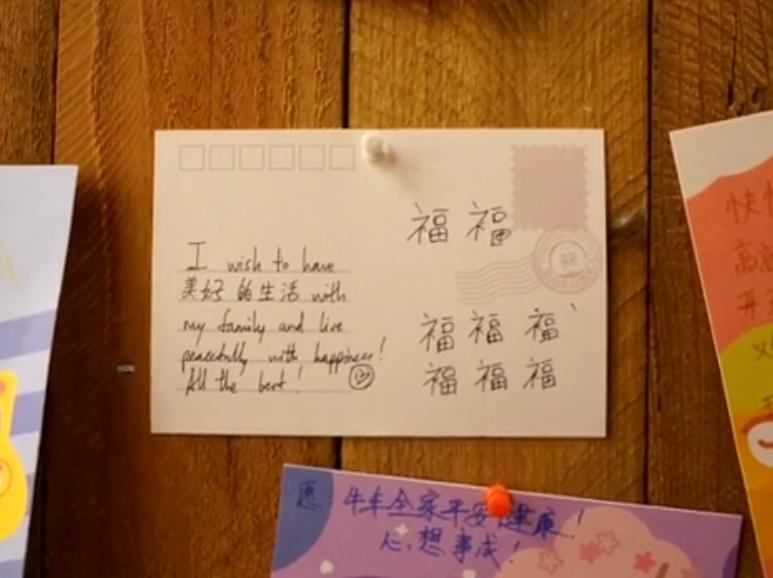 福 福
I wish to have
美好的生活 with
my family and live
peacefully with happiness!
All the best!
福 福 福
福 福 福
愿: 牛车全家平安健康!
心想事成!
快
高
开
又